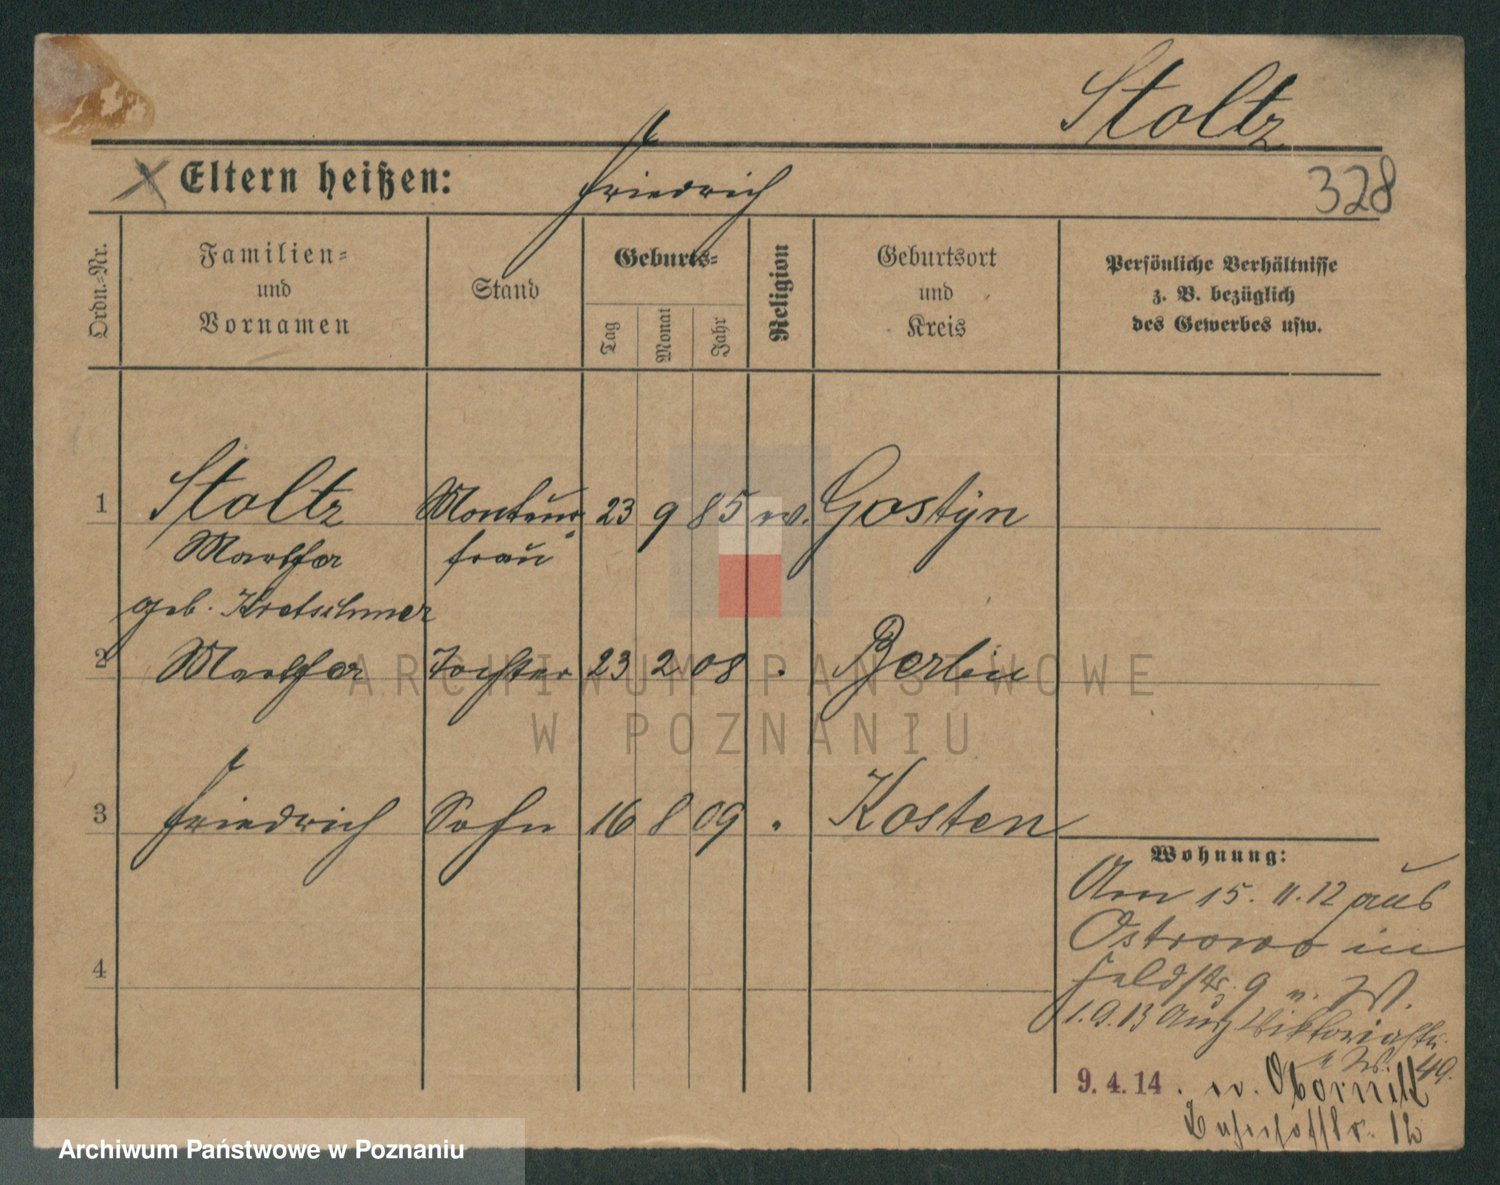 Stoltz
Eltern heißen: Friedrich
328
Ordn.-Nr.
Familien-
und
Vornamen
Stand
Geburts-
Tag
Monat
Jahr
Religion
Geburtsort
und
Kreis
Persönliche Verhältnisse
z. B. bezüglich
des Gewerbes usw.
1 Stoltz Monteur 23 9 85 ev. Gostyn
Martha frau
geb. Kretschmer
2 Martha Tochter 23 2 08 " Berlin
3 Friedrich Sohn 16 8 09 " Kosten
4
Wohnung:
Am 15. 11. 12 aus
Ostrowo in
Feldstr. 9 u. W.
1.9.13 Viktoriastr.
49.
9. 4. 14. Obornik
12
ARCHIWUM PAŃSTWOWE
W POZNANIU
Archiwum Państwowe w Poznaniu